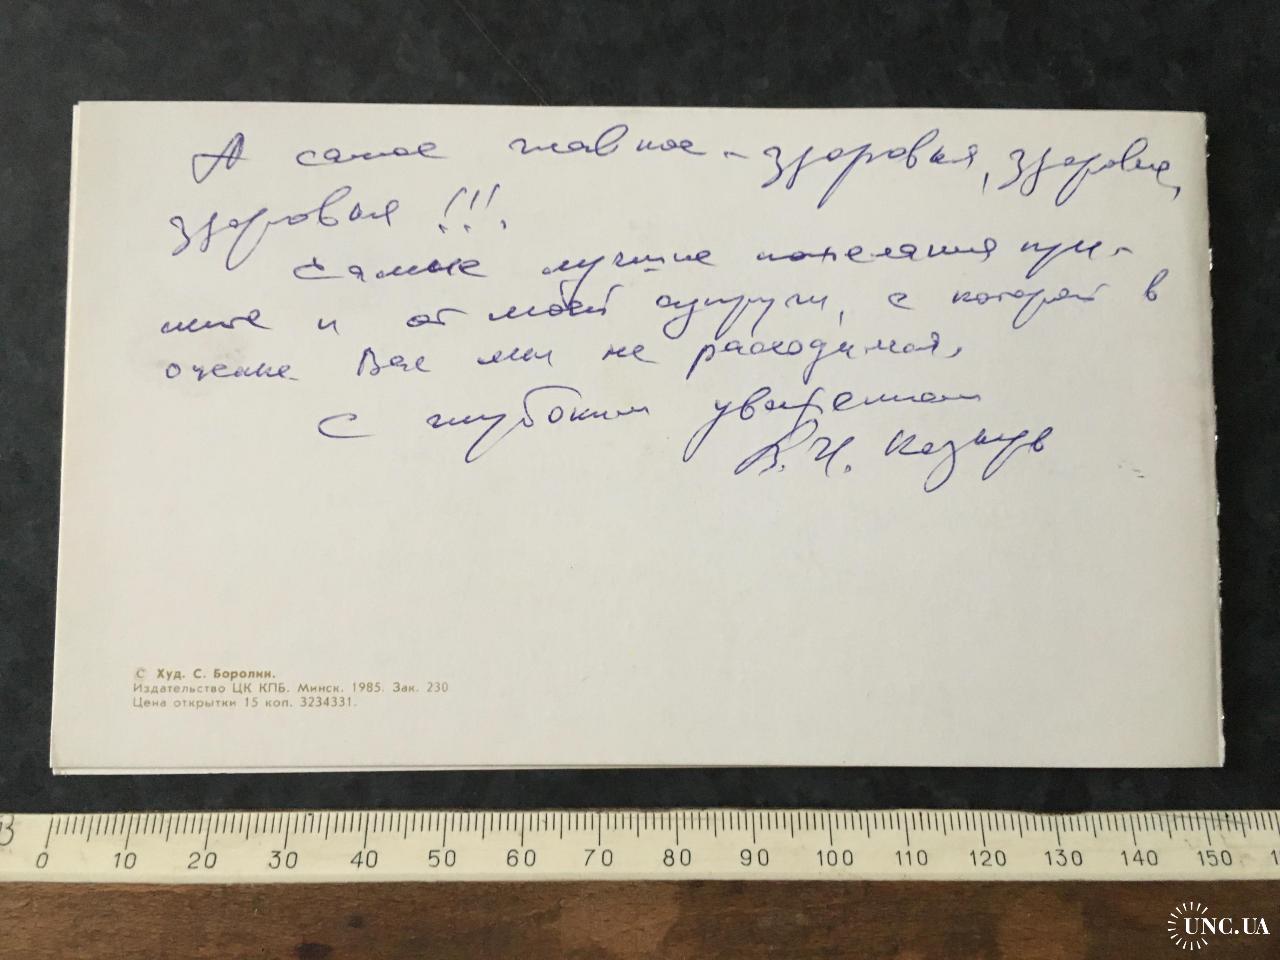 А самое главное - здоровья, здоровья,
здоровья !!!
Самые лучшие пожелания при-
мите и от моей супруги, с которой в
оценке Вас мы не расходимся,
С глубоким уважением
В.И.
© Худ. С. Боролин.
Издательство ЦК КПБ. Минск. 1985. Зак. 230
Цена открытки 15 коп. 3234331.
0 10 20 30 40 50 60 70 80 90 100 110 120 130 140 150
UNC.UA